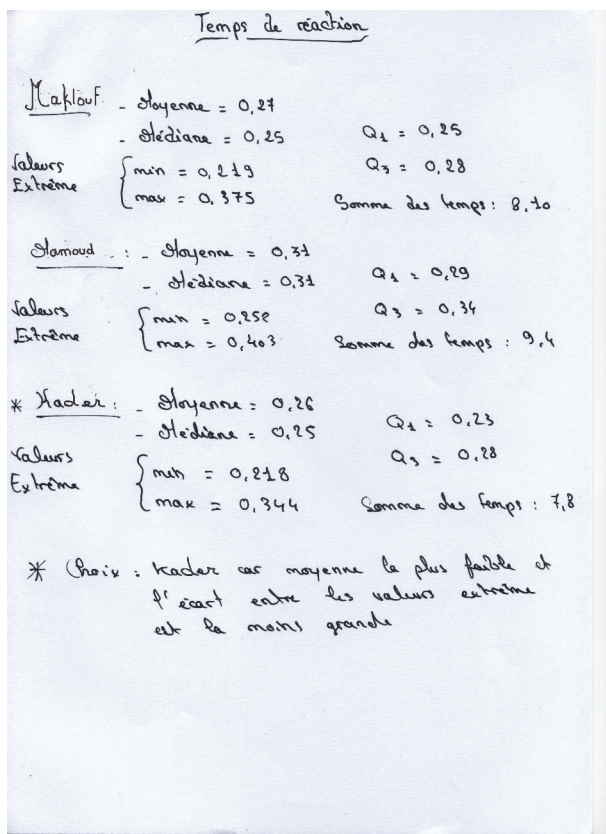 Temps de réaction
Maklouf - Moyenne = 0,27
- Médiane = 0,25 Q1 = 0,25
Valeurs Extrême { min = 0,219 Q3 = 0,28
max = 0,375 Somme des temps : 8,10
Hamoud : - Moyenne = 0,31
- Médiane = 0,31 Q1 = 0,29
Valeurs Extrême { min = 0,252 Q3 = 0,34
max = 0,403 Somme des temps : 9,4
* Kader : - Moyenne = 0,26
- Médiane = 0,25 Q1 = 0,23
Valeurs Extrême { min = 0,218 Q3 = 0,28
max = 0,344 Somme des temps : 7,8
* Choix : Kader car moyenne la plus faible et
l'écart entre les valeurs extrême
est la moins grande